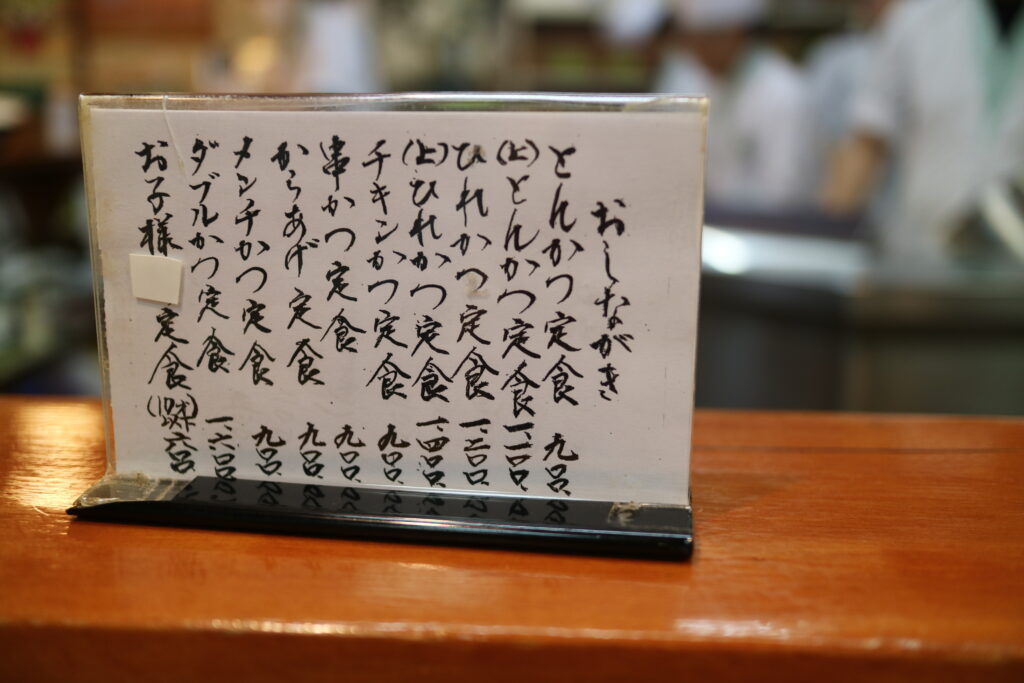 おしながき
とんかつ定食 九〇〇
(上)とんかつ定食 一、一〇〇
ひれかつ定食 一、二〇〇
(上)ひれかつ定食 一、四〇〇
チキンかつ定食 九〇〇
串かつ定食 九〇〇
からあげ定食 九〇〇
メンチかつ定食 九〇〇
ダブルかつ定食 一、六〇〇
お子様定食 六〇〇